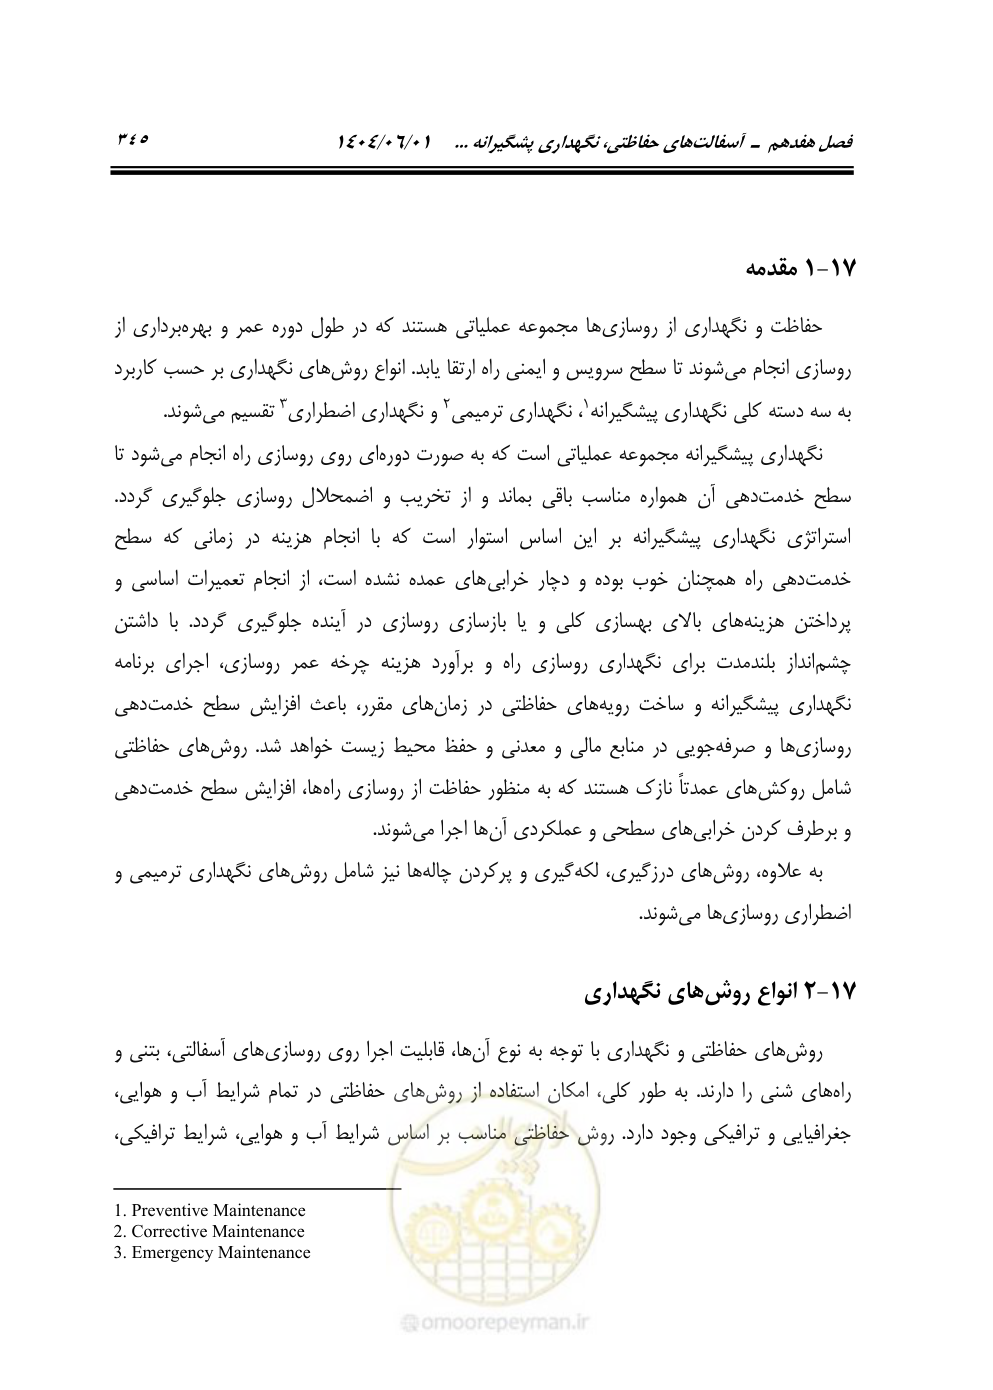 فصل هفدهم ـ آسفالت‌های حفاظتی، نگهداری پشگیرانه ... ۱۴۰۴/۰۶/۰۱ ۳۴۵
۱۷-۱ مقدمه
حفاظت و نگهداری از روسازی‌ها مجموعه عملیاتی هستند که در طول دوره عمر و بهره‌برداری از
روسازی انجام می‌شوند تا سطح سرویس و ایمنی راه ارتقا یابد. انواع روش‌های نگهداری بر حسب کاربرد
به سه دسته کلی نگهداری پیشگیرانه۱، نگهداری ترمیمی۲ و نگهداری اضطراری۳ تقسیم می‌شوند.
نگهداری پیشگیرانه مجموعه عملیاتی است که به صورت دوره‌ای روی روسازی راه انجام می‌شود تا
سطح خدمت‌دهی آن همواره مناسب باقی بماند و از تخریب و اضمحلال روسازی جلوگیری گردد.
استراتژی نگهداری پیشگیرانه بر این اساس استوار است که با انجام هزینه در زمانی که سطح
خدمت‌دهی راه همچنان خوب بوده و دچار خرابی‌های عمده نشده است، از انجام تعمیرات اساسی و
پرداختن هزینه‌های بالای بهسازی کلی و یا بازسازی روسازی در آینده جلوگیری گردد. با داشتن
چشم‌انداز بلندمدت برای نگهداری روسازی راه و برآورد هزینه چرخه عمر روسازی، اجرای برنامه
نگهداری پیشگیرانه و ساخت رویه‌های حفاظتی در زمان‌های مقرر، باعث افزایش سطح خدمت‌دهی
روسازی‌ها و صرفه‌جویی در منابع مالی و معدنی و حفظ محیط زیست خواهد شد. روش‌های حفاظتی
شامل روکش‌های عمدتاً نازک هستند که به منظور حفاظت از روسازی راه‌ها، افزایش سطح خدمت‌دهی
و برطرف کردن خرابی‌های سطحی و عملکردی آن‌ها اجرا می‌شوند.
به علاوه، روش‌های درزگیری، لکه‌گیری و پرکردن چاله‌ها نیز شامل روش‌های نگهداری ترمیمی و
اضطراری روسازی‌ها می‌شوند.
۱۷-۲ انواع روش‌های نگهداری
روش‌های حفاظتی و نگهداری با توجه به نوع آن‌ها، قابلیت اجرا روی روسازی‌های آسفالتی، بتنی و
راه‌های شنی را دارند. به طور کلی، امکان استفاده از روش‌های حفاظتی در تمام شرایط آب و هوایی،
جغرافیایی و ترافیکی وجود دارد. روش حفاظتی مناسب بر اساس شرایط آب و هوایی، شرایط ترافیکی،
1. Preventive Maintenance
2. Corrective Maintenance
3. Emergency Maintenance
@omoorepeyman.ir